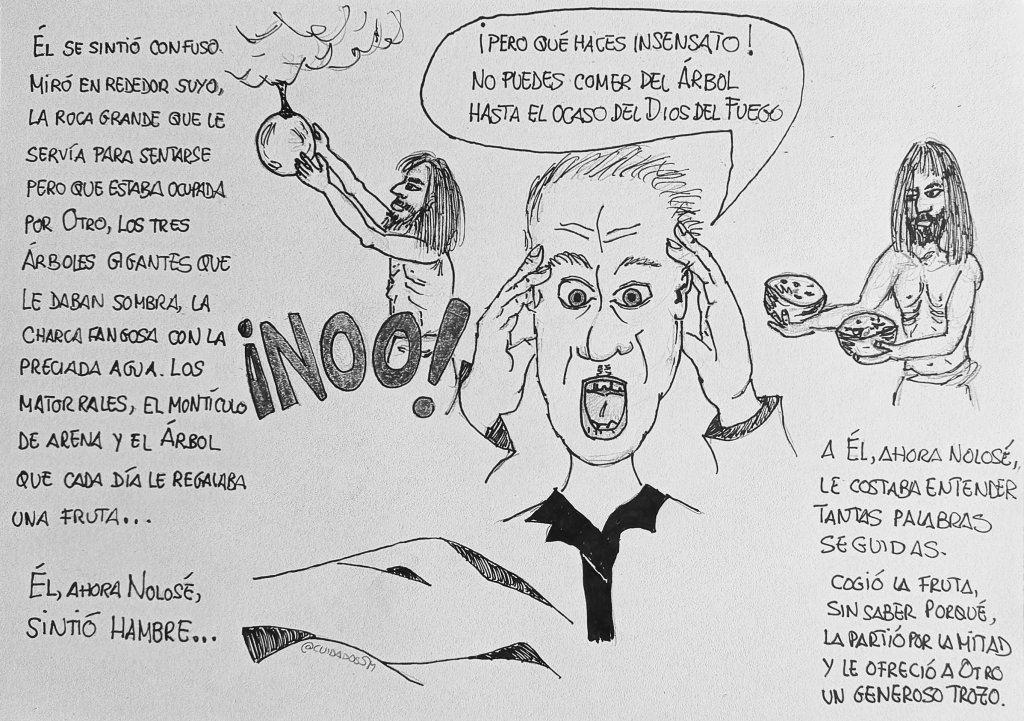 ÉL SE SINTIÓ CONFUSO.
MIRÓ EN REDEDOR SUYO,
LA ROCA GRANDE QUE LE
SERVÍA PARA SENTARSE
PERO QUE ESTABA OCUPADA
POR OTRO, LOS TRES
ÁRBOLES GIGANTES QUE
LE DABAN SOMBRA, LA
CHARCA FANGOSA CON LA
PRECIADA AGUA. LOS
MATORRALES, EL MONTÍCULO
DE ARENA Y EL ÁRBOL
QUE CADA DÍA LE REGALABA
UNA FRUTA...
ÉL, AHORA NOLOSÉ,
SINTIÓ HAMBRE...
¡NOO!
¡PERO QUÉ HACES INSENSATO!
NO PUEDES COMER DEL ÁRBOL
HASTA EL OCASO DEL DIOS DEL FUEGO
@CUIDADOSSM
A ÉL, AHORA NOLOSÉ,
LE COSTABA ENTENDER
TANTAS PALABRAS
SEGUIDAS.
COGIÓ LA FRUTA,
SIN SABER PORQUÉ,
LA PARTIÓ POR LA MITAD
Y LE OFRECIÓ A OTRO
UN GENEROSO TROZO.